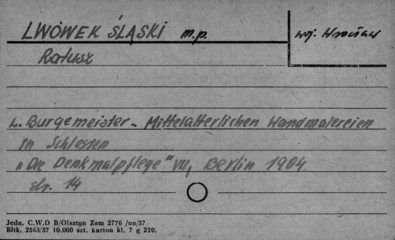 LWÓWEK ŚLĄSKI m.p.
woj. Wrocław
Ratusz
L. Burgemeister - Mittelalterlichen Wandmalereien
in Schlesien
"Die Denkmalpflege" VII, Berlin 1904
str. 14
Jedn. C.W.D B/Olsztyn Zam 2776 /on/57
Błtk. 2563/37 10.000 szt. karton kl. 7 g 220.